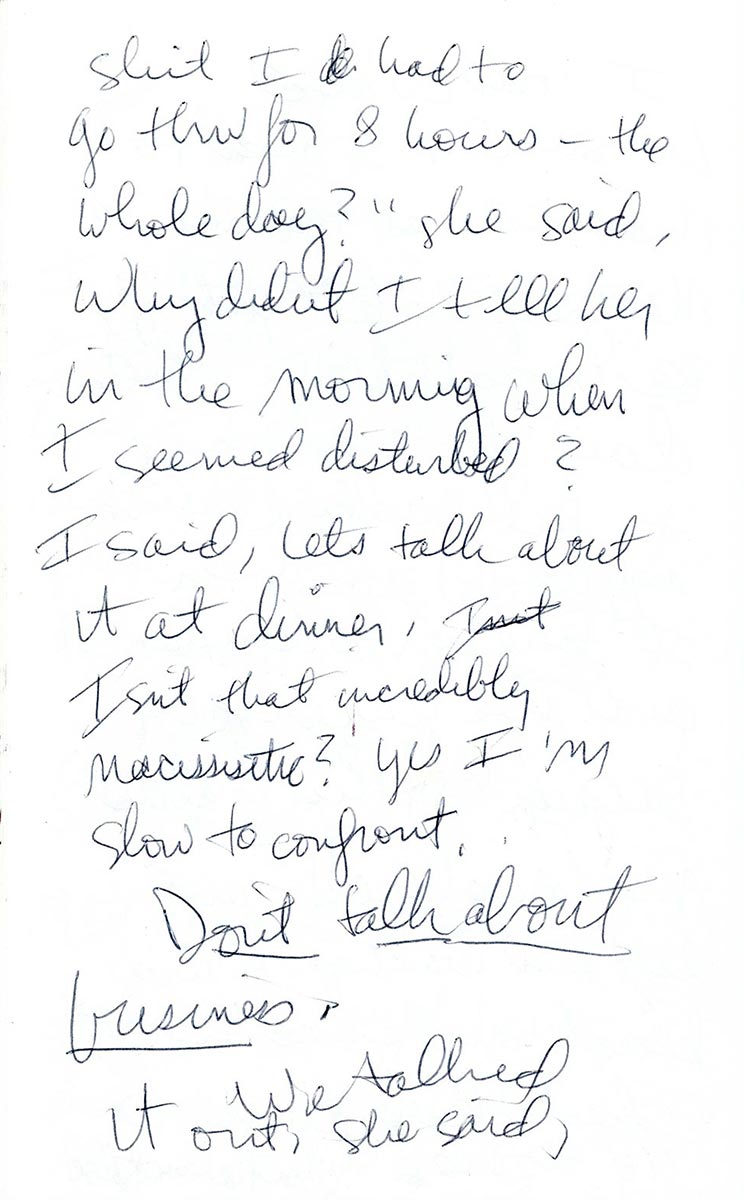 shit I had to
go thru for 8 hours – the
whole day?" she said,
Why didnt I tell her
in the morning when
I seemed disturbed?
I said, lets talk about
it at dinner. Isnt
Isnt that incredibly
nacissistic? Yes I'm
slow to confront.
Don't talk about
business.
We talked
it out, she said,